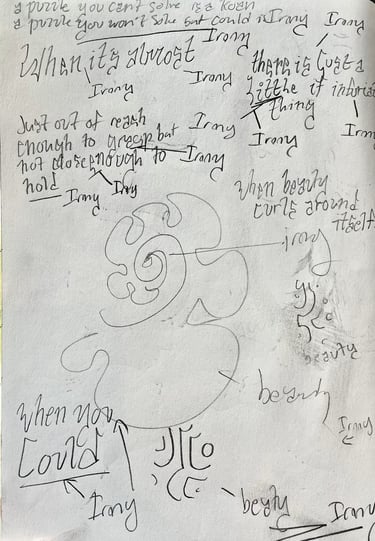 a puzzle you can't solve is a Koan
a puzzle you won't solve but could is Irony
Irony
Irony
When its almost
Irony
Irony
there is Just a
Little if
thing
Irony
Irony
Irony
Just out of reach
enough to grasp but
Irony
not close enough to
Irony
hold
Irony
Irony
when beauty
curls around
itself
irony
beauty
beauty
Irony
when you
Could
Irony
beaty
Irony